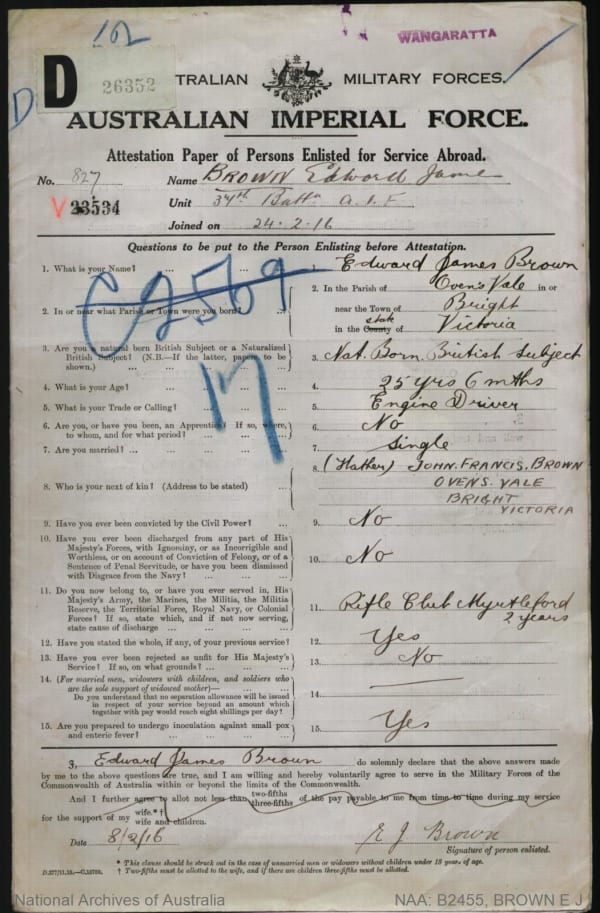 102
WANGARATTA
D 26352
D
TRALIAN MILITARY FORCES.
AUSTRALIAN IMPERIAL FORCE.
Attestation Paper of Persons Enlisted for Service Abroad.
No. 827 Name BROWN Edward Jame
V 23534 Unit 37th Battn A.I.F
Joined on 24.2.16
Questions to be put to the Person Enlisting before Attestation.
C2569
17
1. What is your Name? ... ... ... 1. Edward James Brown
2. In or near what Parish or Town were you born? 2. In the Parish of Ovens Vale in or
near the Town of Bright
in the County of state Victoria
3. Are you a natural born British Subject or a Naturalized
British Subject? (N.B.—If the latter, papers to be
shown.) ... ... 3. Nat. Born. British Subject
4. What is your Age? ... 4. 25 yrs 6 mths
5. What is your Trade or Calling? ... 5. Engine Driver
6. Are you, or have you been, an Apprentice? If so, where,
to whom, and for what period? ... 6. No
7. Are you married? ... 7. Single
8. Who is your next of kin? (Address to be stated) ... 8. (Father) JOHN. FRANCIS. BROWN
OVENS. VALE
BRIGHT
VICTORIA
9. Have you ever been convicted by the Civil Power? ... 9. No
10. Have you ever been discharged from any part of His
Majesty's Forces, with Ignominy, or as Incorrigible and
Worthless, or on account of Conviction of Felony, or of a
Sentence of Penal Servitude, or have you been dismissed
with Disgrace from the Navy? ... ... ... 10. No
11. Do you now belong to, or have you ever served in, His
Majesty's Army, the Marines, the Militia, the Militia
Reserve, the Territorial Force, Royal Navy, or Colonial
Forces? If so, state which, and if not now serving,
state cause of discharge ... ... ... 11. Rifle Club Myrtleford
2 years
12. Have you stated the whole, if any, of your previous service? 12. Yes
13. Have you ever been rejected as unfit for His Majesty's
Service? If so, on what grounds? ... ... 13. No
14. (For married men, widowers with children, and soldiers who
are the sole support of widowed mother)—
Do you understand that no separation allowance will be issued
in respect of your service beyond an amount which
together with pay would reach eight shillings per day? 14.
15. Are you prepared to undergo inoculation against small pox
and enteric fever? ... ... ... ... 15. Yes
I, Edward James Brown do solemnly declare that the above answers made
by me to the above questions are true, and I am willing and hereby voluntarily agree to serve in the Military Forces of the
Commonwealth of Australia within or beyond the limits of the Commonwealth.
And I further agree to allot not less than two-fifths three-fifths of the pay payable to me from time to time during my service
for the support of my wife.*† wife and children.
Date 8/2/16 E J Brown
Signature of person enlisted.
* This clause should be struck out in the case of unmarried men or widowers without children under 18 years of age.
† Two-fifths must be allotted to the wife, and if there are children three-fifths must be allotted.
D.577/11.15.—C.16768.
National Archives of Australia NAA: B2455, BROWN E J